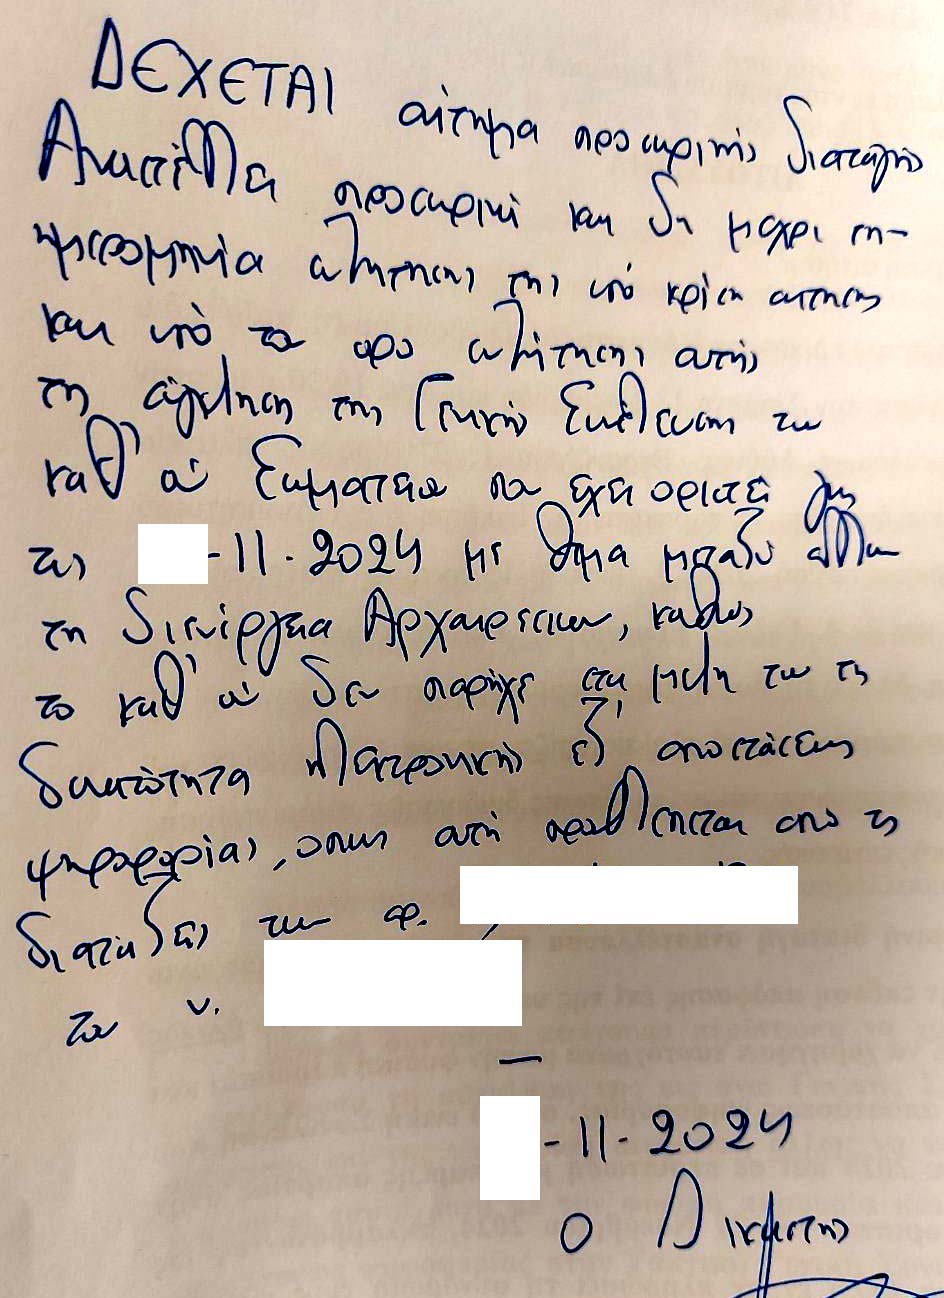 ΔΕΧΕΤΑΙ αίτημα προσωρινής διαταγής
Αναστέλλει προσωρινά και δη μέχρι τη-
ημερομηνία συζήτησης της υπό κρίση αιτησης
και υπό το ορο συζήτησης αυτής
τη σύγκληση της Γενικής Συνέλευσης του
καθ' ου Σωματείου που έχει οριστεί για
τις -11-2024 με θέμα μεταξύ άλλων
τη διενέργεια Αρχαιρεσιων, καθώς
το καθ' ου δεν παρήχε στα μέλη του τη
δυνατότητα ηλεκτρονικής εξ' αποστάσεως
ψηφοφορίας, οπως αυτή προβλέπεται από τις
διατάξεις των αρ.
του ν.
-11-2024
Ο Δικαστης